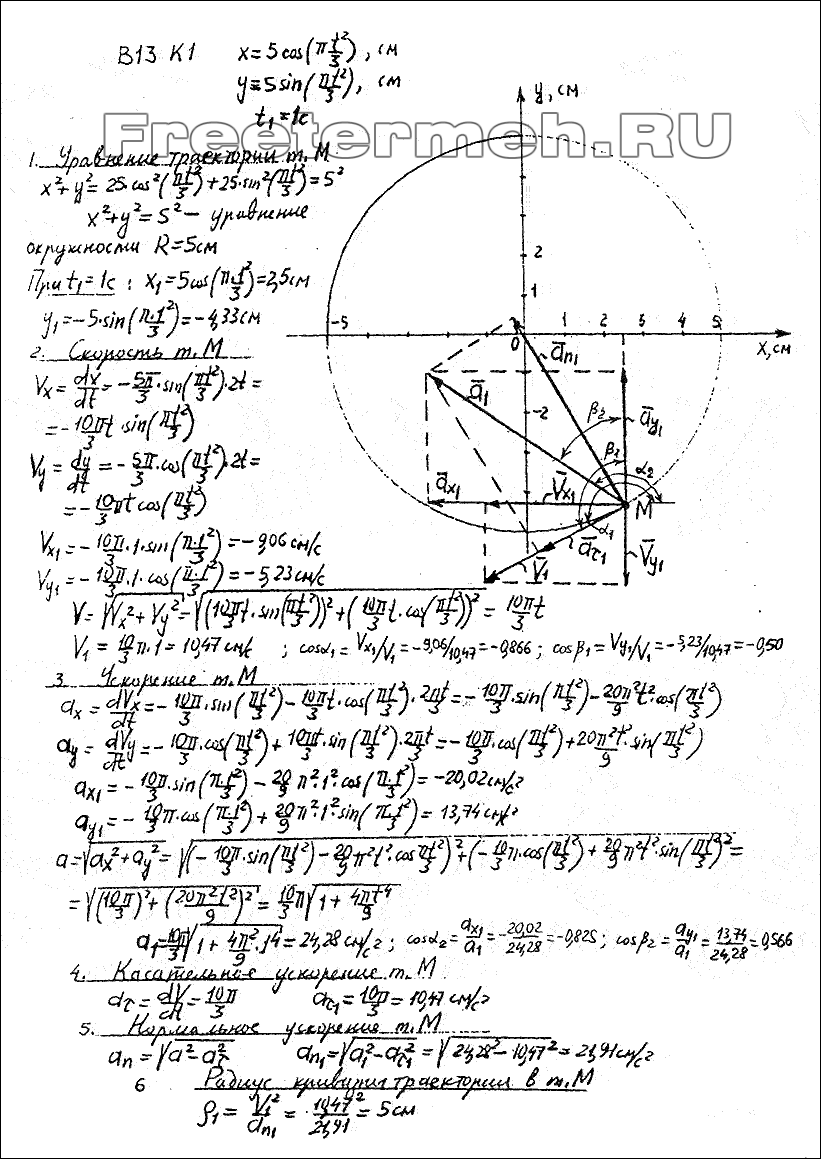 В13 К1 x=5cos(πt²/3), см
y=5sin(πt²/3), см
t₁=1c
Freetermeh.RU
1. Уравнение траектории т. М
x²+y²=25·cos²(πt²/3)+25·sin²(πt²/3)=5²
x²+y²=5² – уравнение
окружности R=5см
При t₁=1c: x₁=5cos(π·1²/3)=2,5см
y₁=-5·sin(π·1²/3)=-4,33см
2. Скорость т. М
Vx=dx/dt=-5π/3·sin(πt²/3)·2t=
=-10πt/3·sin(πt²/3)
Vy=dy/dt=-5π/3·cos(πt²/3)·2t=
=-10/3πt cos(πt²/3)
Vx₁=-10π/3·1·sin(π·1²/3)=-9,06 см/с
Vy₁=-10π/3·1·cos(π·1²/3)=-5,23 см/с
V=√(Vx²+Vy²)=√((10πt/3·sin(πt²/3))²+(10πt/3·cos(πt²/3))²)=10πt/3
V₁=10/3π·1=10,47 см/с ; cosα₁=Vx₁/V₁=-9,06/10,47=-0,866; cosβ₁=Vy₁/V₁=-5,23/10,47=-0,50
3. Ускорение т. М
ax=dVx/dt=-10π/3·sin(πt²/3)-10πt/3·cos(πt²/3)·2πt/3=-10π/3·sin(πt²/3)-20π²t²/9·cos(πt²/3)
ay=dVy/dt=-10π/3·cos(πt²/3)+10πt/3·sin(πt²/3)·2πt/3=-10π/3·cos(πt²/3)+20π²t²/9·sin(πt²/3)
ax₁=-10π/3·sin(π·1²/3)-20/9π²·1²·cos(π·1²/3)=-20,02 см/с²
ay₁=-10π/3·cos(π·1²/3)+20/9π²·1²·sin(π·1²/3)=13,74 см/с²
a=√(ax²+ay²)=√((-10π/3·sin(πt²/3)-20/9π²t²·cos(πt²/3))²+(-10/3π·cos(πt²/3)+20/9π²t²·sin(πt²/3))²)=
=√((10π/3)²+(20π²t²/9)²)=10/3π√(1+4πt⁴/9)
a₁=10π/3√(1+4π²/9·1⁴)=24,28 см/с²; cosα₂=ax₁/a₁=-20,02/24,28=-0,825; cosβ₂=ay₁/a₁=13,74/24,28=0,566
4. Касательное ускорение т. М
aτ=dV/dt=10π/3 aτ₁=10π/3=10,47 см/с²
5. Нормальное ускорение т. М
an=√(a²-aτ²) an₁=√(a₁²-aτ₁²)=√(24,28²-10,47²)=21,91 см/с²
6 Радиус кривизны траектории в т. М
ρ₁=V₁²/an₁=10,47²/21,91=5см
y, см
2
1
-5 0 1 2 3 4 5
x, см
-2
ān₁
ā₁
β₂
āy₁
β₁
α₂
āx₁
V̄x₁
M
α₁
āτ₁
V̄₁
V̄y₁